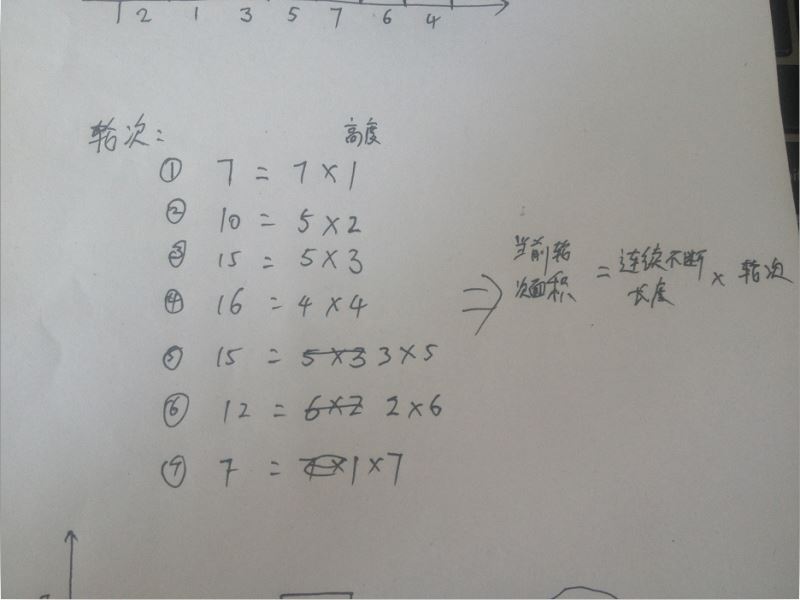 2 1 3 5 7 6 4
轮次: 高度
① 7 = 7 × 1
② 10 = 5 × 2
③ 15 = 5 × 3
④ 16 = 4 × 4
⑤ 15 = 5 × 3 3 × 5
⑥ 12 = 6 × 2 2 × 6
⑦ 7 = 1 × 7
⇒ 当前轮次面积 = 连续不断长度 × 轮次